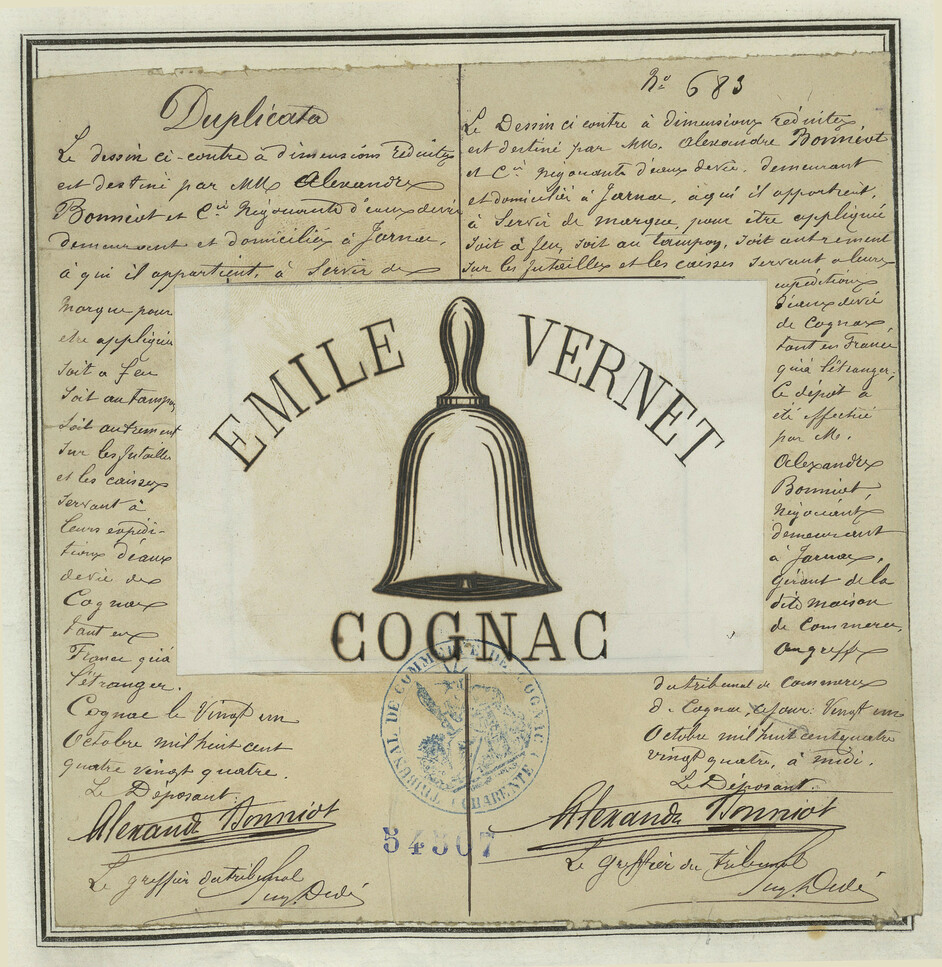 Duplicata
Le dessin ci-contre à dimensions réduites
est destiné par MM Alexandre
Bonniot et Cie Négociants d'eaux de vie
demeurant et domiciliés à Jarnac,
à qui il appartient, à Servir de
Marque pour
etre appliquée
Soit à feu
Soit au tampon,
Soit autrement
Sur les futailles
et les caisses
Servant à
leurs expédi-
tions d'eaux
de vie de
Cognac
Tant en
France qu'à
l'étranger.
Cognac le Vingt un
Octobre mil huit cent
quatre vingt quatre.
Le Déposant:
Alexandre Bonniot
Le greffier du tribunal
No 683
Le Dessin ci contre à dimensions réduites
est destiné par MM. Alexandre Bonniot
et Cie Négociants d'eaux de vie, demeurant
et domiciliés à Jarnac, à qui il appartient,
à Servir de marque, pour être appliquée
Soit à feu, soit au tampon, soit autrement
Sur les futailles et les caisses servant à leurs
expéditions
d'eaux de vie
de Cognac,
tant en France
qu'à l'étranger.
Ce dépôt a
été effectué
par M.
Alexandre
Bonniot,
Négociant,
demeurant
à Jarnac,
gérant de la
dite maison
de Commerce,
au greffe
du tribunal de Commerce
de Cognac, ce jour: Vingt un
Octobre mil huit cent quatre
vingt quatre, à midi.
Le Déposant:
Alexandre Bonniot
Le greffier du tribunal
EMILE VERNET
COGNAC
TRIBUNAL DE COMMERCE DE COGNAC
CHARENTE
54307